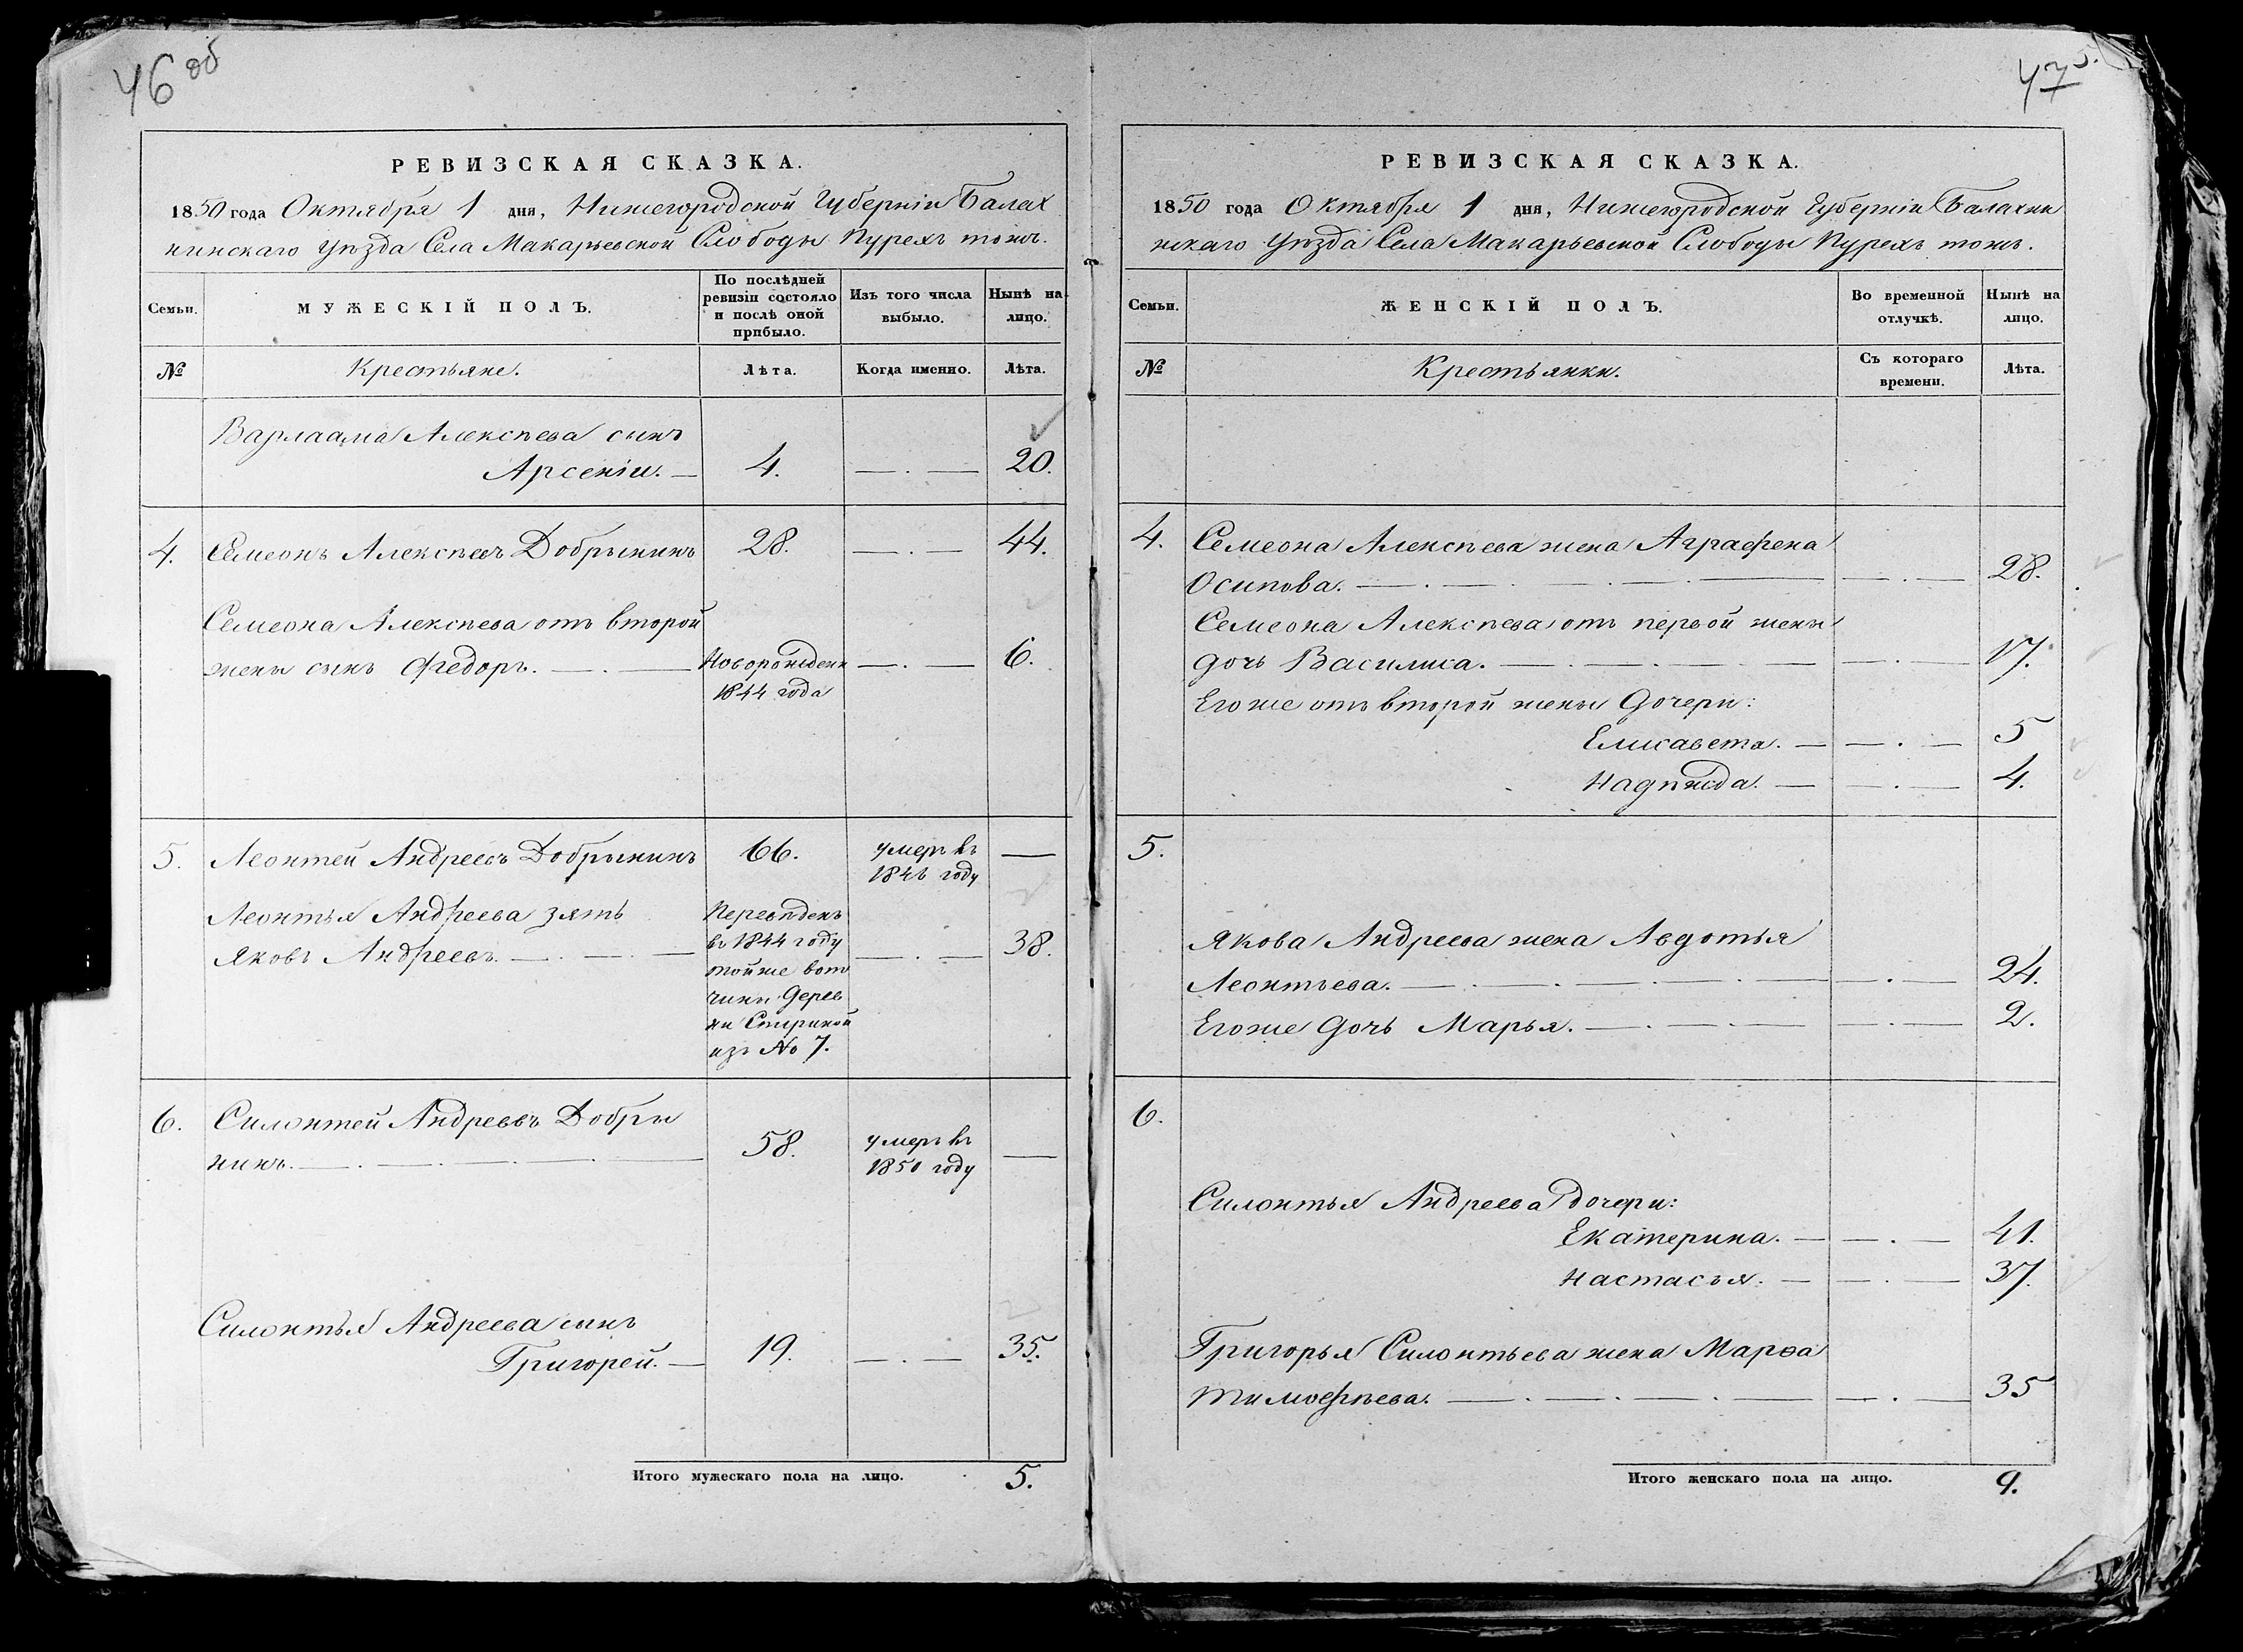 46 об
РЕВИЗСКАЯ СКАЗКА.
1850 года Октября 1 дня, Нижегородской Губернiи Балах
нинскаго уѣзда Села Макарьевской Слободы Пурехъ тожъ.
Семьи.
МУЖЕСКІЙ ПОЛЪ.
По послѣдней ревизіи состояло и послѣ оной прибыло.
Изъ того числа выбыло.
Нынѣ на лицо.
№
Крестьяне.
Лѣта.
Когда именно.
Лѣта.
Варлаама Алексѣева сынъ
Арсенiи. 4. 20.
4. Семеонъ Алексѣевъ Добрынинъ 28. 44.
Семеона Алексѣева отъ второй
жены сынъ Федоръ. Новорожден 6.
1844 года
5. Леонтей Андреевъ Добрынинъ 66. умеръ въ
1846 году
Леонтья Андреева зять
Яковъ Андреевъ. 38.
Переведенъ
въ 1844 году
той же вот
чины Дерев
ни Спириной
изъ № 7.
6. Силонтей Андреевъ Добры
нинъ. 58. умеръ въ
1850 году
Силонтья Андреева сынъ
Григорей. 19. 35.
Итого мужескаго пола на лицо. 5.
47 5.
РЕВИЗСКАЯ СКАЗКА.
1850 года Октября 1 дня, Нижегородской Губернiи Балахни
нскаго Уѣзда Села Макарьевской Слободы Пурехъ тожъ.
Семьи.
ЖЕНСКІЙ ПОЛЪ.
Во временной отлучкѣ.
Нынѣ на лицо.
№
Крестьянки.
Съ котораго времени.
Лѣта.
4. Семеона Алексѣева жена Аграфена
Осипова. 28.
Семеона Алексѣева отъ первой жены
дочь Василиса. 17.
Его же отъ второй жены Дочери:
Елисавета. 5
Надѣжда. 4.
5.
Якова Андреева жена Авдотья
Леонтьева. 24.
Его же Дочь Марья. 2.
6.
Силонтья Андреева дочери:
Екатерина. 41.
Настасья. 37.
Григорья Силонтьева жена Марѳа
Тимофѣева. 35
Итого женскаго пола на лицо. 9.